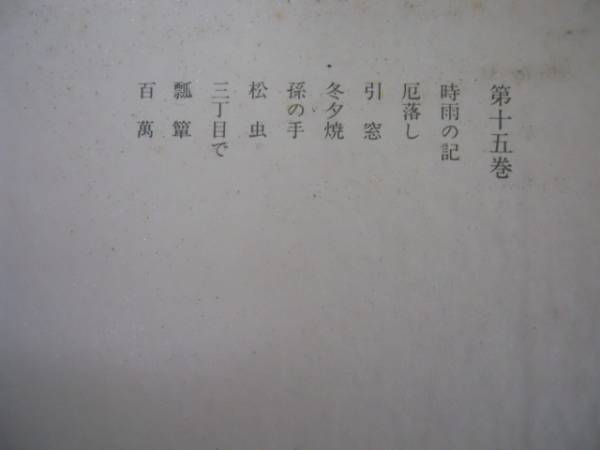 第十五巻
時雨の記
厄落し
引窓
冬夕焼
孫の手
松虫
三丁目で
瓢簞
百萬